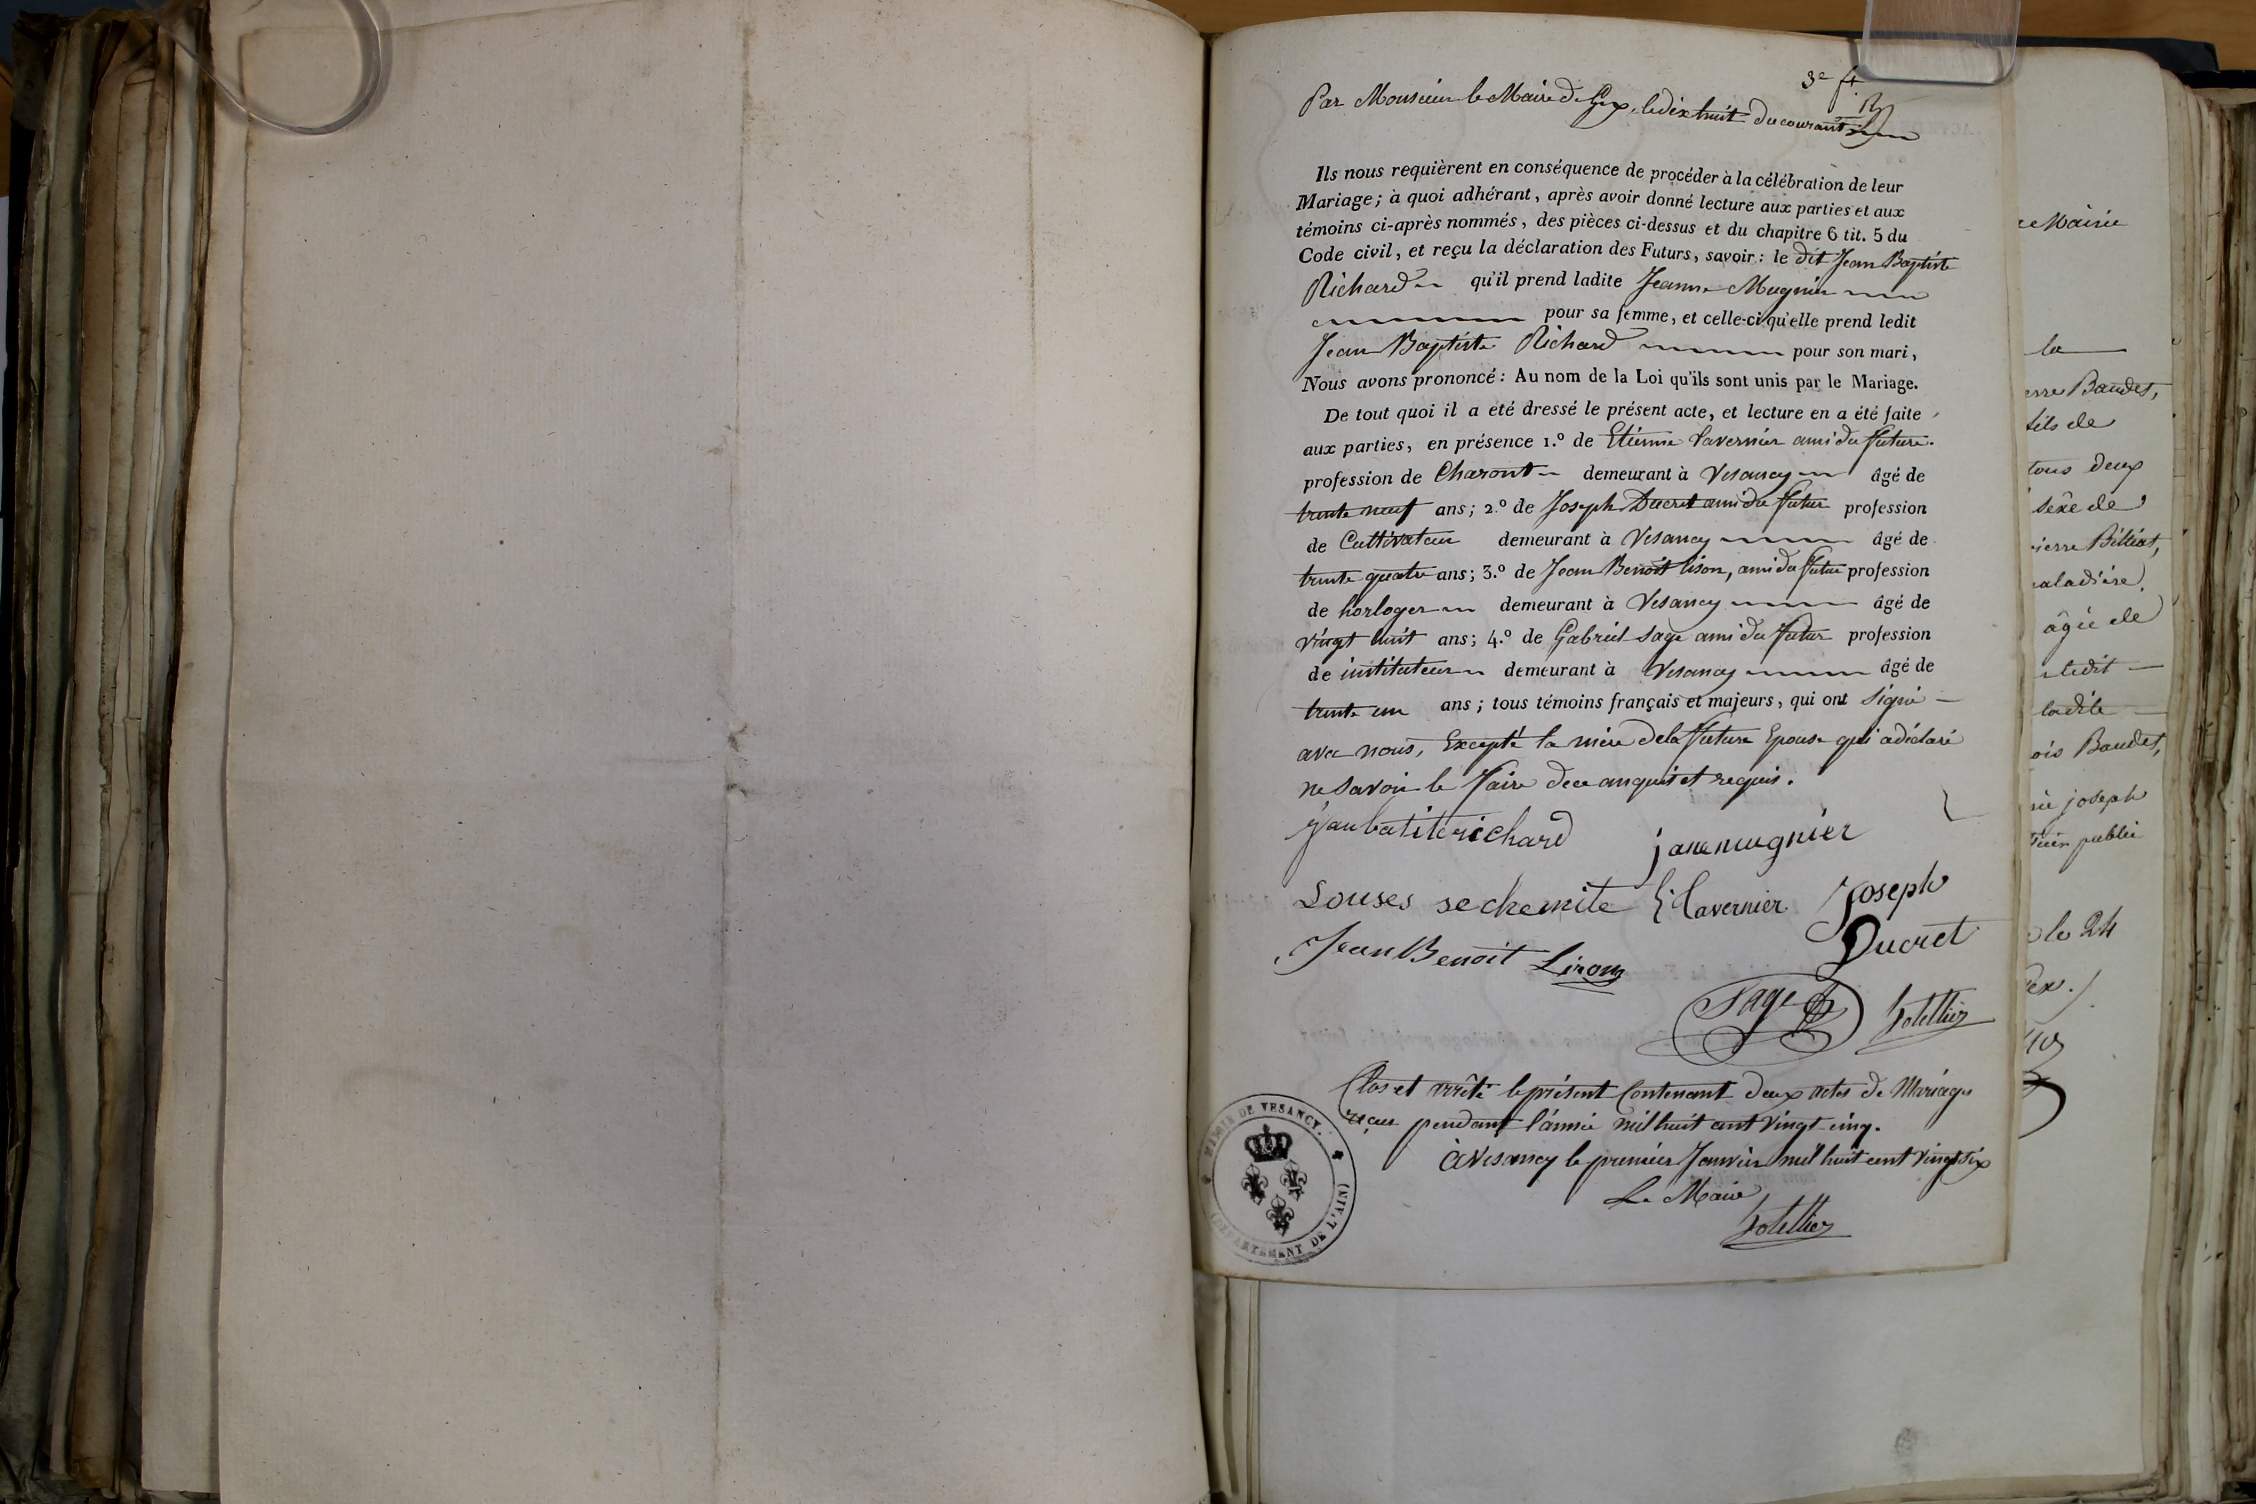 3e ft.
Par Monsieur le Maire de Gex, le dix huit du courant
Ils nous requièrent en conséquence de procéder à la célébration de leur
Mariage; à quoi adhérant, après avoir donné lecture aux parties et aux
témoins ci-après nommés, des pièces ci-dessus et du chapitre 6 tit. 5 du
Code civil, et reçu la déclaration des Futurs, savoir: le dit Jean Baptiste
Richard qu'il prend ladite Jeanne Mugnier
pour sa femme, et celle-ci qu'elle prend ledit
Jean Baptiste Richard pour son mari,
Nous avons prononcé: Au nom de la Loi qu'ils sont unis par le Mariage.
De tout quoi il a été dressé le présent acte, et lecture en a été faite
aux parties, en présence 1.º de Etienne Tavernier ami du future.
profession de Charont demeurant à Vesancy âgé de
trente neuf ans; 2.º de Joseph Ducret ami du futur profession
de Cultivateur demeurant à Vesancy âgé de
trente quatre ans; 3.º de Jean Benoit Lison, ami du futur profession
de horloger demeurant à Vesancy âgé de
vingt huit ans; 4.º de Gabriel Sage ami du futur profession
de instituteur demeurant à Vesancy âgé de
trente un ans; tous témoins français et majeurs, qui ont signé
avec nous, Excepté la mère de la future Epouse qui a déclaré
ne savoir le faire de ce anquis et requis.
jan batite richard jane mugnier
Louses sechemite E. Tavernier Joseph
Ducret
Jean Benoit Lizon
Sage
Clos et arrêté le présent Contenant deux actes de Mariages
reçus pendant l'année mil huit cent vingt cinq.
à Vesancy le premier Janvier mil huit cent vingt six
Le Maire
MAIRIE DE VESANCY.
(DEPARTEMENT DE L'AIN)
la
Baudet,
fils de
tous deux
sexe de
Billiat,
âgée de
ledit
ladite
Baudet,
joseph
public
le 24